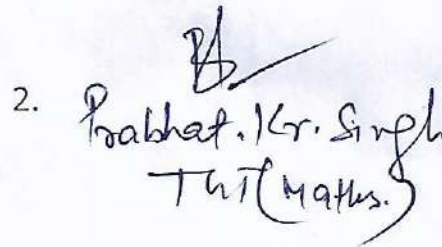 2. Prabhat. Kr. Singh
TGT (Maths.)